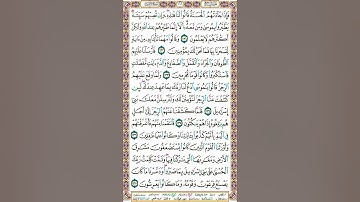 فَإِذَا جَآءَتْهُمُ ٱلْحَسَنَةُ قَالُوا۟ لَنَا هَٰذِهِۦ وَإِن تُصِبْهُمْ سَيِّئَةٌ
يَطَّيَّرُوا۟ بِمُوسَىٰ وَمَن مَّعَهُۥٓ أَلَآ إِنَّمَا طَٰٓئِرُهُمْ عِندَ ٱللَّهِ وَلَٰكِنَّ
أَكْثَرَهُمْ لَا يَعْلَمُونَ وَقَالُوا۟ مَهْمَا تَأْتِنَا بِهِۦ مِنْ ءَايَةٍ
لِّتَسْحَرَنَا بِهَا فَمَا نَحْنُ لَكَ بِمُؤْمِنِينَ فَأَرْسَلْنَا عَلَيْهِمُ
ٱلطُّوفَانَ وَٱلْجَرَادَ وَٱلْقُمَّلَ وَٱلضَّفَادِعَ وَٱلدَّمَ ءَايَٰتٍ مُّفَصَّلَٰتٍ
فَٱسْتَكْبَرُوا۟ وَكَانُوا۟ قَوْمًا مُّجْرِمِينَ وَلَمَّا وَقَعَ عَلَيْهِمُ
ٱلرِّجْزُ قَالُوا۟ يَٰمُوسَى ٱدْعُ لَنَا رَبَّكَ بِمَا عَهِدَ عِندَكَ لَئِن
كَشَفْتَ عَنَّا ٱلرِّجْزَ لَنُؤْمِنَنَّ لَكَ وَلَنُرْسِلَنَّ مَعَكَ بَنِىٓ
إِسْرَٰٓءِيلَ فَلَمَّا كَشَفْنَا عَنْهُمُ ٱلرِّجْزَ إِلَىٰٓ أَجَلٍ
هُم بَٰلِغُوهُ إِذَا هُمْ يَنكُثُونَ فَٱنتَقَمْنَا مِنْهُمْ فَأَغْرَقْنَٰهُمْ
فِى ٱلْيَمِّ بِأَنَّهُمْ كَذَّبُوا۟ بِـَٔايَٰتِنَا وَكَانُوا۟ عَنْهَا غَٰفِلِينَ
وَأَوْرَثْنَا ٱلْقَوْمَ ٱلَّذِينَ كَانُوا۟ يُسْتَضْعَفُونَ مَشَٰرِقَ
ٱلْأَرْضِ وَمَغَٰرِبَهَا ٱلَّتِى بَٰرَكْنَا فِيهَا وَتَمَّتْ كَلِمَتُ رَبِّكَ
ٱلْحُسْنَىٰ عَلَىٰ بَنِىٓ إِسْرَٰٓءِيلَ بِمَا صَبَرُوا۟ وَدَمَّرْنَا مَا كَانَ
يَصْنَعُ فِرْعَوْنُ وَقَوْمُهُۥ وَمَا كَانُوا۟ يَعْرِشُونَ